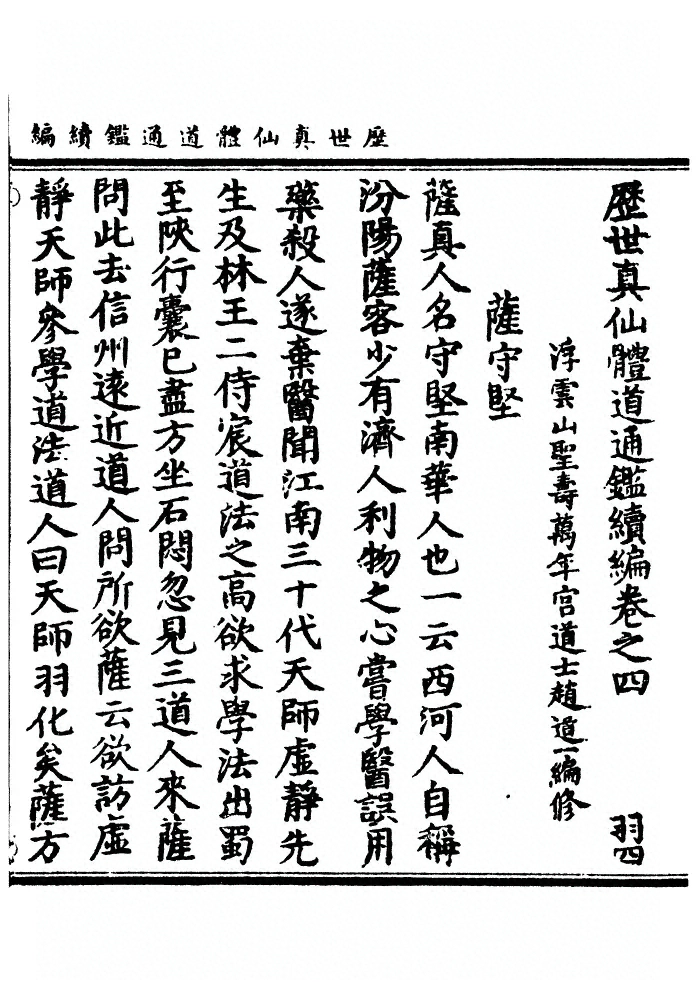 歷世真仙體道通鑑續編
歷世真仙體道通鑑續編卷之四 羽四
浮雲山聖壽萬年宮道士趙道一編修
薩守堅
薩真人名守堅南華人也一云西河人自稱
汾陽薩客少有濟人利物之心嘗學醫誤用
藥殺人遂棄醫聞江南三十代天師虛靜先
生及林王二侍宸道法之高欲求學法出蜀
至陝行囊已盡方坐石悶忽見三道人來薩
問此去信州遠近道人問所欲薩云欲訪虛
靜天師參學道法道人曰天師羽化矣薩方